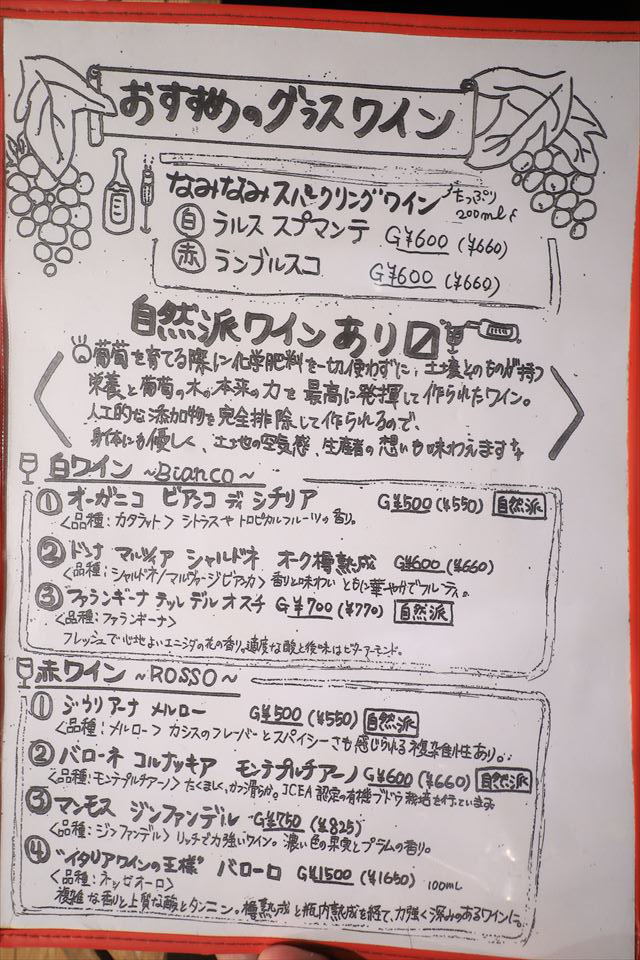 おすすめのグラスワイン
なみなみスパークリングワイン たっぷり200ml
白 ラルス スプマンテ G¥600 (¥660)
赤 ランブルスコ G¥600 (¥660)
自然派ワインあり
葡萄を育てる際に化学肥料を一切使わずに、土壌そのものが持つ
栄養と葡萄の木が本来の力を最高に発揮して作られたワイン。
人工的な添加物を完全排除して作られるので、
身体にも優しく、土地の空気感、生産者の想いも味わえます
白ワイン ~Bianco~
① オーガニコ ビアンコ ディ シチリア G¥500 (¥550) 自然派
<品種:カタラット> シトラスやトロピカルフルーツの香り。
② ドンナ マルツィア シャルドネ オーク樽熟成 G¥600 (¥660)
<品種:シャルドネ/マルヴァージビアンカ> 香りと味わいともに華やかでフルーティ。
③ ファランギーナ テッレ デル オスチ G¥700 (¥770) 自然派
<品種:ファランギーナ>
フレッシュで心地よいエニシダの花の香り。適度な酸と後味はビターアーモンド。
赤ワイン ~ROSSO~
① ジウリアーナ メルロー G¥500 (¥550) 自然派
<品種:メルロー> カシスのフレーバーとスパイシーさも感じられる複雑性あり。
② バローネ コルナッキア モンテプルチアーノ G¥600 (¥660) 自然派
<品種:モンテプルチアーノ> たくましく、かつ滑らか。ICEA認定の有機ブドウ栽培を行っています
③ マンモス ジンファンデル G¥750 (¥825)
<品種:ジンファンデル> リッチで力強いワイン。濃い色の果実とプラムの香り。
④ "イタリアワインの王様" バローロ G¥1500 (¥1650) 100mL
<品種:ネッビオーロ>
複雑な香りと上質な酸とタンニン。樽熟成と瓶内熟成を経て、力強く深みのあるワインに。